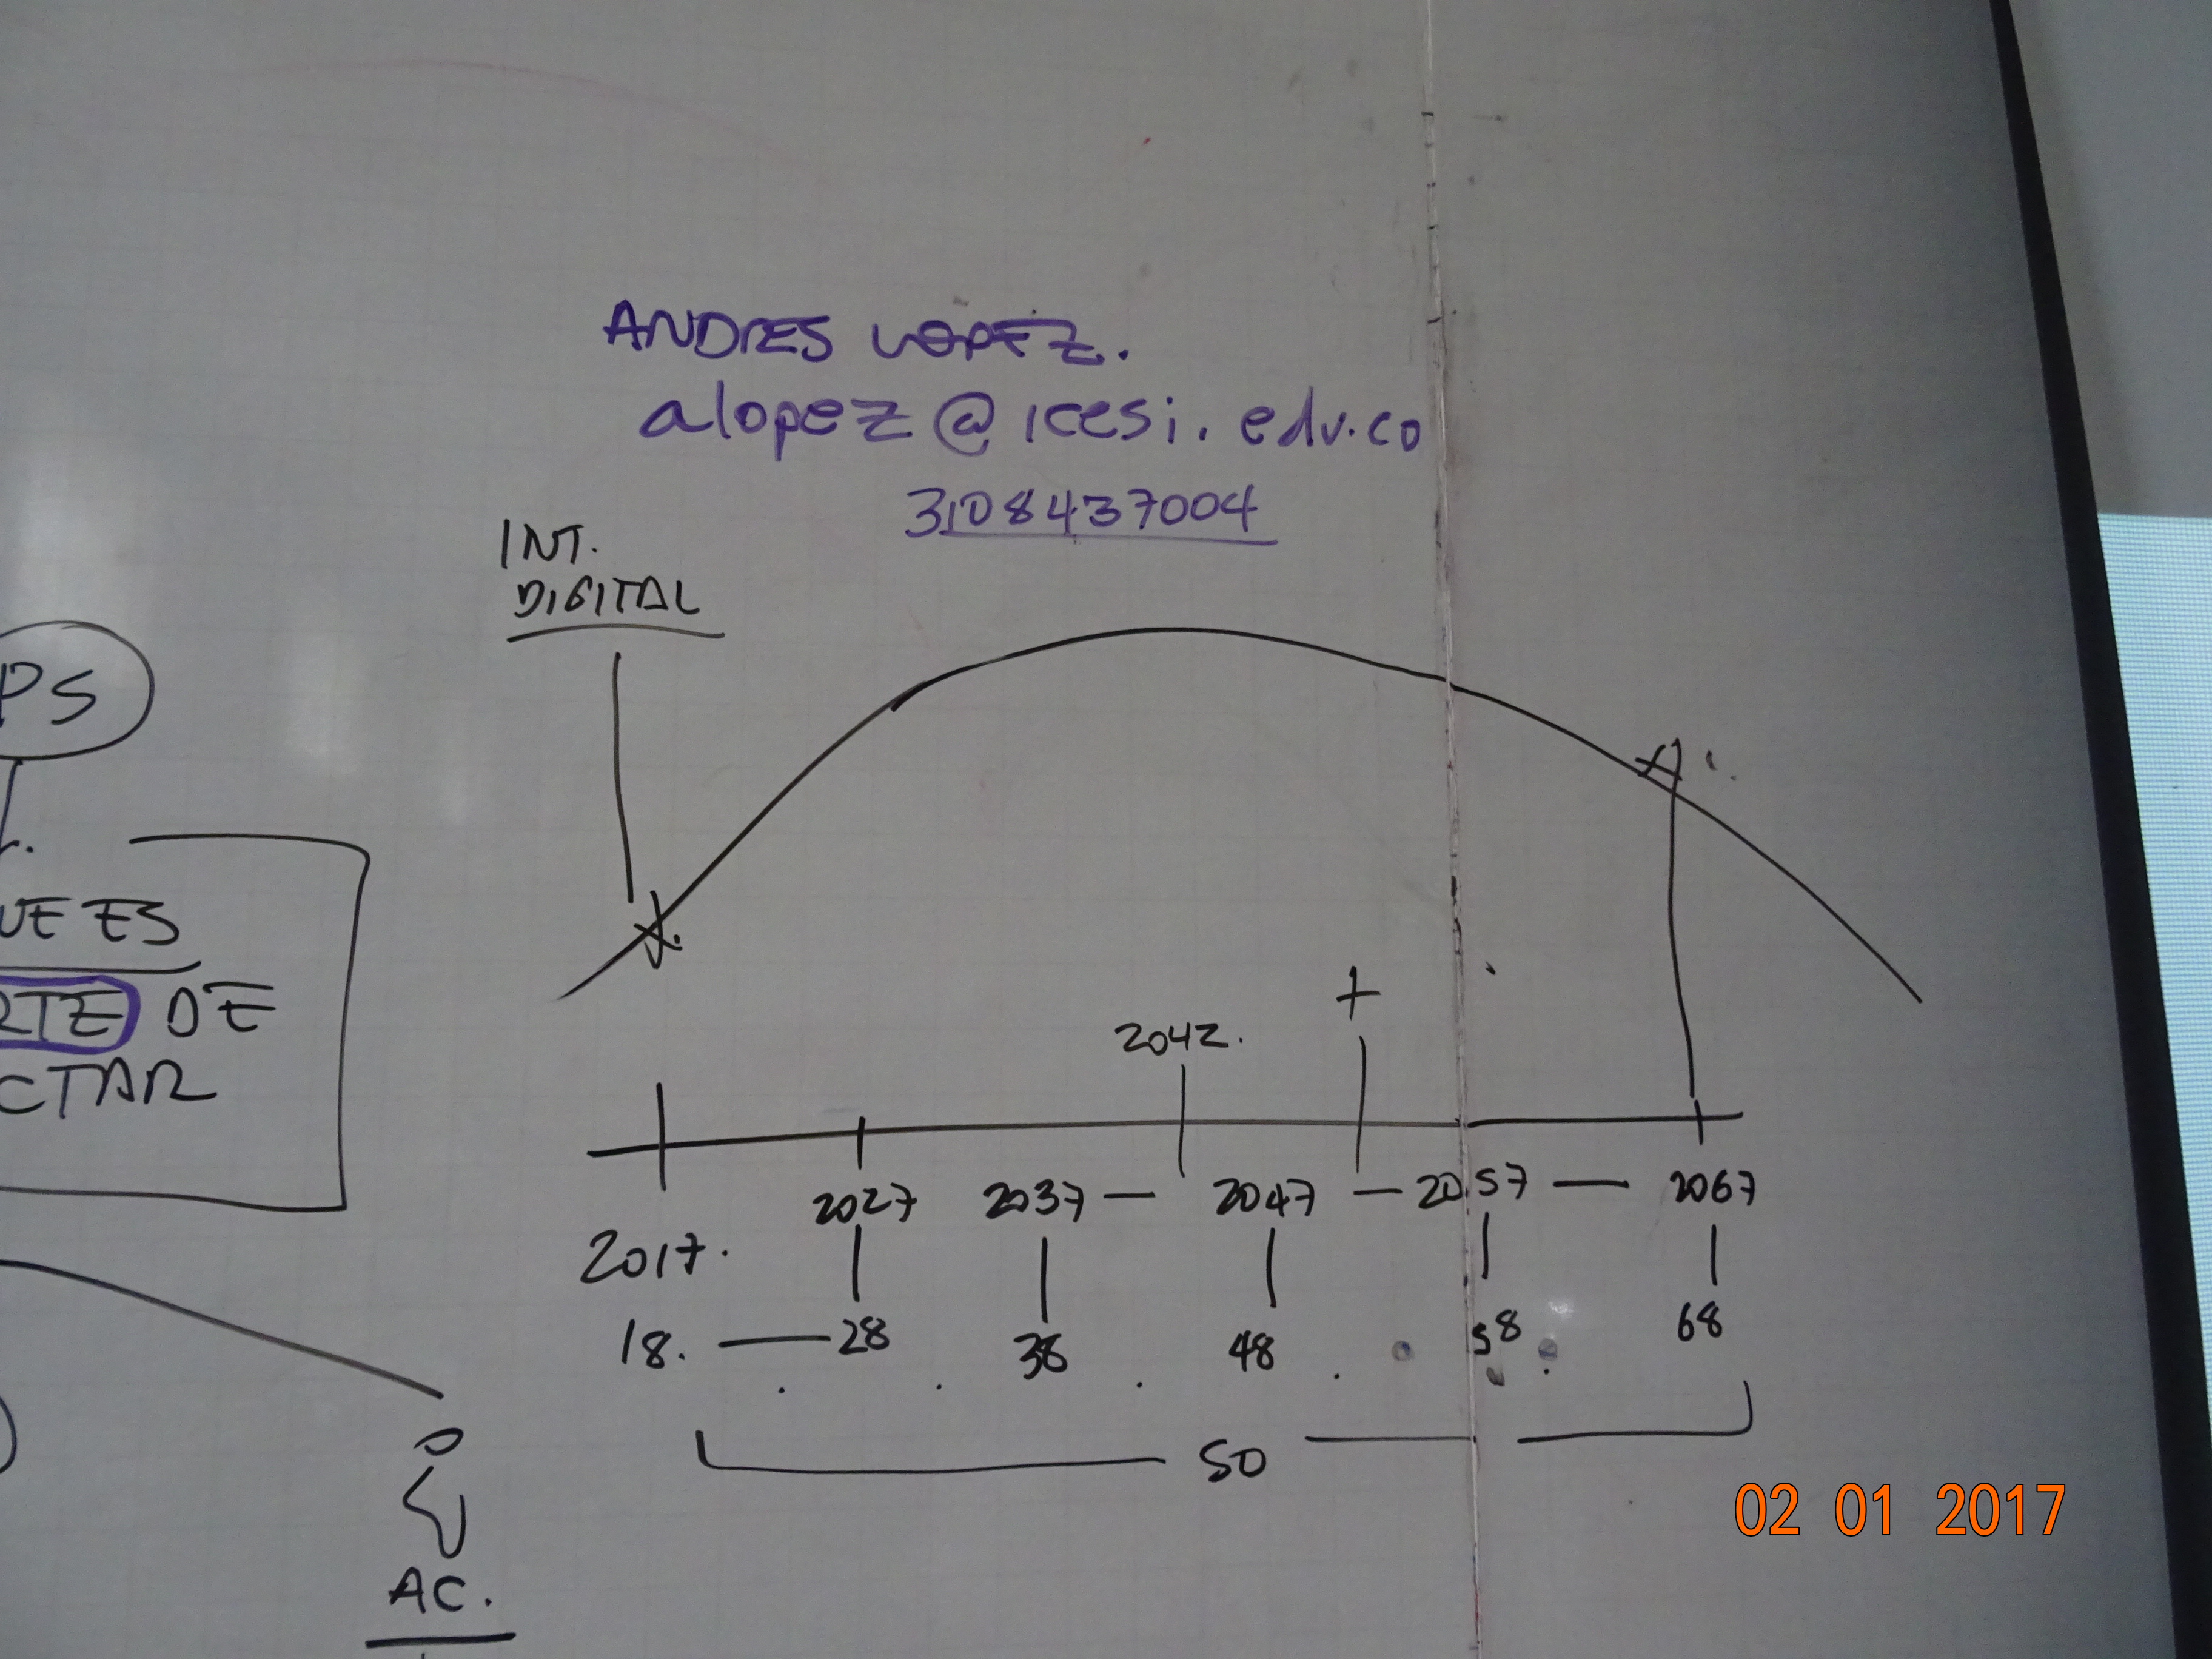 ANDRES LOPEZ.
alopez@icesi.edu.co
3108437004
INT.
DIGITAL
PS
UE ES
RTE DE
CTAR
2042.
+
2027 2037 — 2047 — 2057 — 2067
2017.
18. — 28 38 48 58 68
50
AC.
02 01 2017